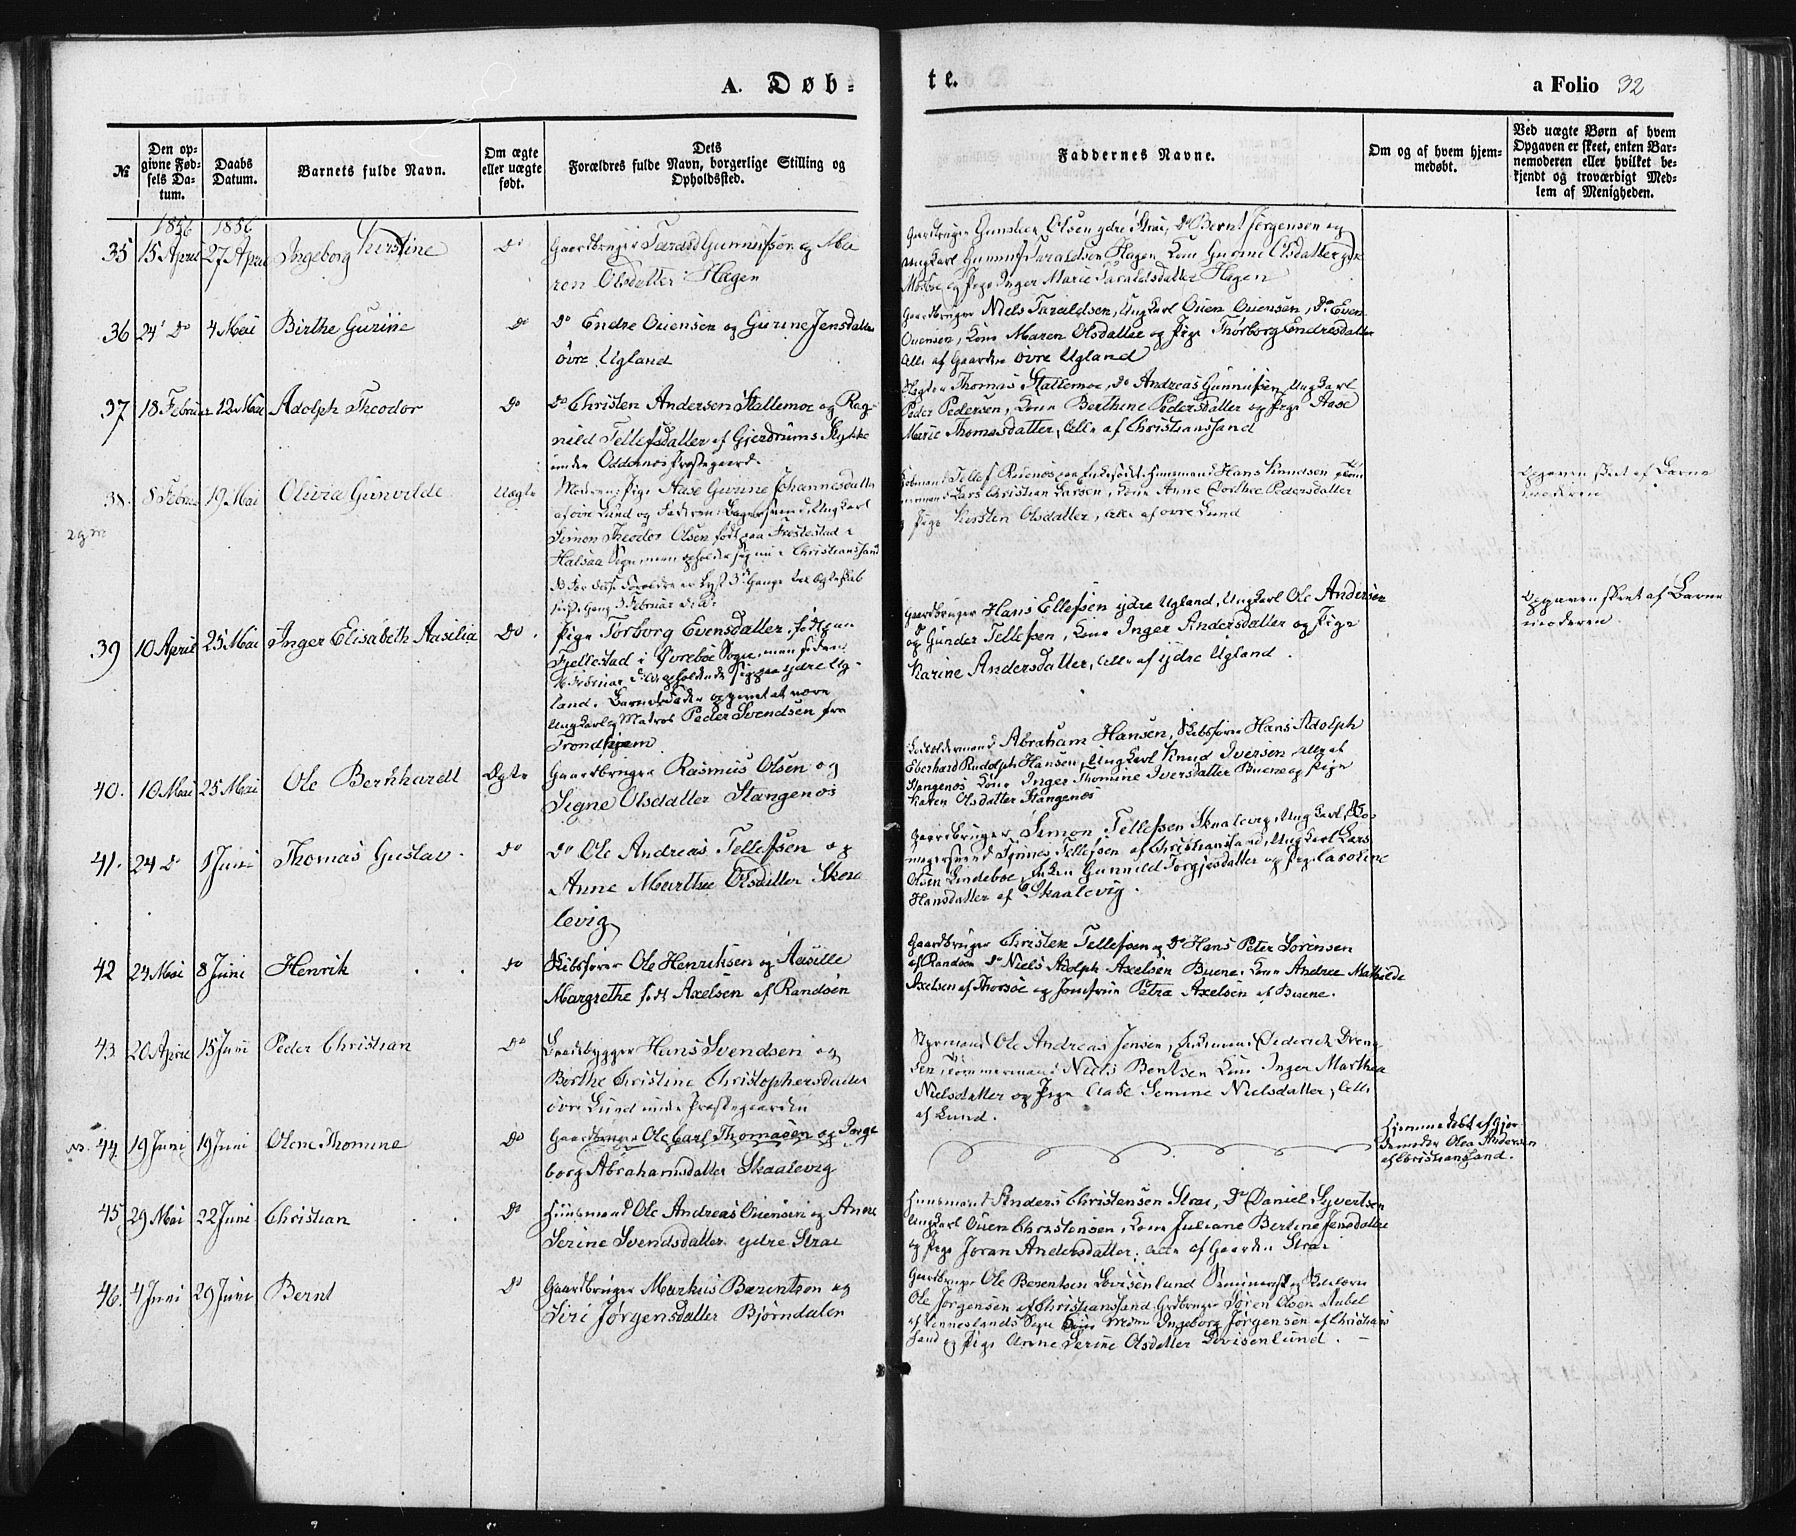 A. Døb-
te.
a Folio 32
№
Den op-
givne Fød-
sels Da-
tum.
Daabs
Datum.
Barnets fulde Navn.
Om ægte
eller uægte
født.
Dets
Forældres fulde Navn, borgerlige Stilling og
Opholdssted.
Faddernes Navne.
Om og af hvem hjem-
medøbt.
Ved uægte Børn af hvem
Opgaven er skeet, enten Bar-
nemoderen eller hvilket be-
kjendt og troværdigt Med-
lem af Menigheden.
1856 1856
35 15 April 27 April Ingeborg Kirstine Do
Gaardbruger Tarald Gunnufsen og Ma-
ren Olsdatter Hagen
Gaardbruger Gunder Olsen ydre Strai, Do Bernt Jørgensen og
Ungkarl Gunnuf Taraldsen Hagen Kone Gurine Olsdatter
og Pige Inger Marie Taraldsdatter Hagen
36 24 Do 4 Mai Birthe Gurine Do
Do Endre Ouensen og Gurine Jensdatter
øvre Ugland
Gaardbruger Niels Taraldsen, Ungkarl Ouen Ouensen, Do Even
Ouensen, Kone Maren Olsdatter og Pige Thorborg Endresdatter
alle af Gaarden øvre Ugland
37 18 Februar 12 Mai Adolph Theodor Do
Do Christen Andersen Stallemoe og Rag-
nild Tellefsdatter af Gjerdrums Stykke
under Oddernes Præstegaard
Thomas Stallemoe, Do Andreas Gunnufsen, Ungkarl
Peder Pedersen, Kone Berthine Pedersdatter og Pige Aase
Marie Thomasdatter, alle af Christianssand
38. 8 Februar 19 Mai Olivia Gunvilde Uægte
Moderen: Pige Aase Gurine Johannesdatter
af øvre Lund og Faderen: Bagersvend, Ungkarl
Simon Theodor Olsen født paa Frøstestad i
Halsaa Sogn men opholder sig nu i Christianssand
Tellef Hans Knudsen
Lars Christian Larsen, Kone Anne Dorthea Pedersdatter
og Pige Kirsten Olsdatter, alle af øvre Lund
Opgaven skeet af Barne
moderen
39 10 April 25 Mai Inger Elisabeth Aasilia Do.
Pige Torborg Evensdatter, født paa
Fjellestad i Øvrebøe Sogn, men siden
opholdende sig paa ydre Ug-
land. Barnefader opgivet at være
Ungkarl og Matros Peder Svendsen fra
Trondhjem
Gaardbruger Hans Ellefsen ydre Ugland, Ungkarl Ole Andersen
og Do Gunder Tellefsen, Kone Inger Andersdatter og Pige
Karine Andersdatter, alle af ydre Ugland.
Opgaven skeet af Barne
moderen
40. 10 Mai 25 Mai Ole Bernhardt Ægte
Gaardbruger Rasmus Olsen og
Signe Olsdatter Stangenæs
Abraham Hansen, Skibsfører Hans Adolph
Eberhard Rudolph Hansen, Ungkarl Knud Iversen alle af
Stangenæs Kone Inger Thomine Iversdatter Buene og Pige
Karen Olsdatter Stangenæs
41. 24 Do 1 Juni Thomas Gustav Do
Do Ole Andreas Tellefsen og
Anne Marthe Olsdatter Skaa-
levig
Gaardbruger Simon Tellefsen Skaalevig, Ungkarl, Sko-
magersvend Tønnes Tellefsen af Christianssand, Ungkarl Lars
Olsen Lindeboe, Enken Gunnild Torgjusdatter og Pige Caroline
Hansdatter af Skaalevig.
42 24 Mai 8 Juni Henrik Do
Skibsfører Ole Henriksen og Aasille
Margrethe født Axelsen af Randøen
Gaardbruger Christen Tellefsen og Do Hans Peter Sørensen
af Randøen Do Niels Adolph Axelsen Buene. Kone Andrea Mathilde
Axelsen af Thorsøe og Jomfrue Petra Axelsen af Buene.
43 20 April 15 Juni Peder Christian Do
Baadbygger Hans Svendsen og
Berthe Christine Christophersdatter
øvre Lund under Præstegaarden
Styrmand Ole Andreas Jensen, Enkemand Diderich
Tømmermand Niels Bentsen Kone Inger Marthea
Nielsdatter og Pige Aase Semine Nielsdatter, alle
af Lund.
44 19 Juni 19 Juni Olene Thomine Do
Gaardbruger Ole Carl Thomasen og Torge
borg Abrahamsdatter Skaalevig
Hjemmedøbt af Gjor-
demoder Olea Andersen
af Christianssand.
45 29 Mai 22 Juni Christian Do
Huusmand Ole Andreas Ouensen og Anne
Serine Svendsdatter ydre Strai
Huusmand Anders Christensen Strai, Do Daniel Syvertsen
Ungkarl Ouen Christensen, Kone Juliane Bertine Jensdatter
og Pige Joran Andersdatter, alle af Gaarden Strai
46. 4 Juni 29 Juni Bernt Do
Gaardbruger Markus Barentsen og
Siri Jørgensdatter Bjørndalen
Gaardbruger Ole Berentsen Lovisenlund Seminarist og Skolelærer
Ole Jørgensen af Christianssand Gaardbruger Søren Olsen Aabel
af Vennesland Sogn Ingeborg Jørgensen af Christians
sand og Pige Anne Serine Olsdatter Lovisenlund.